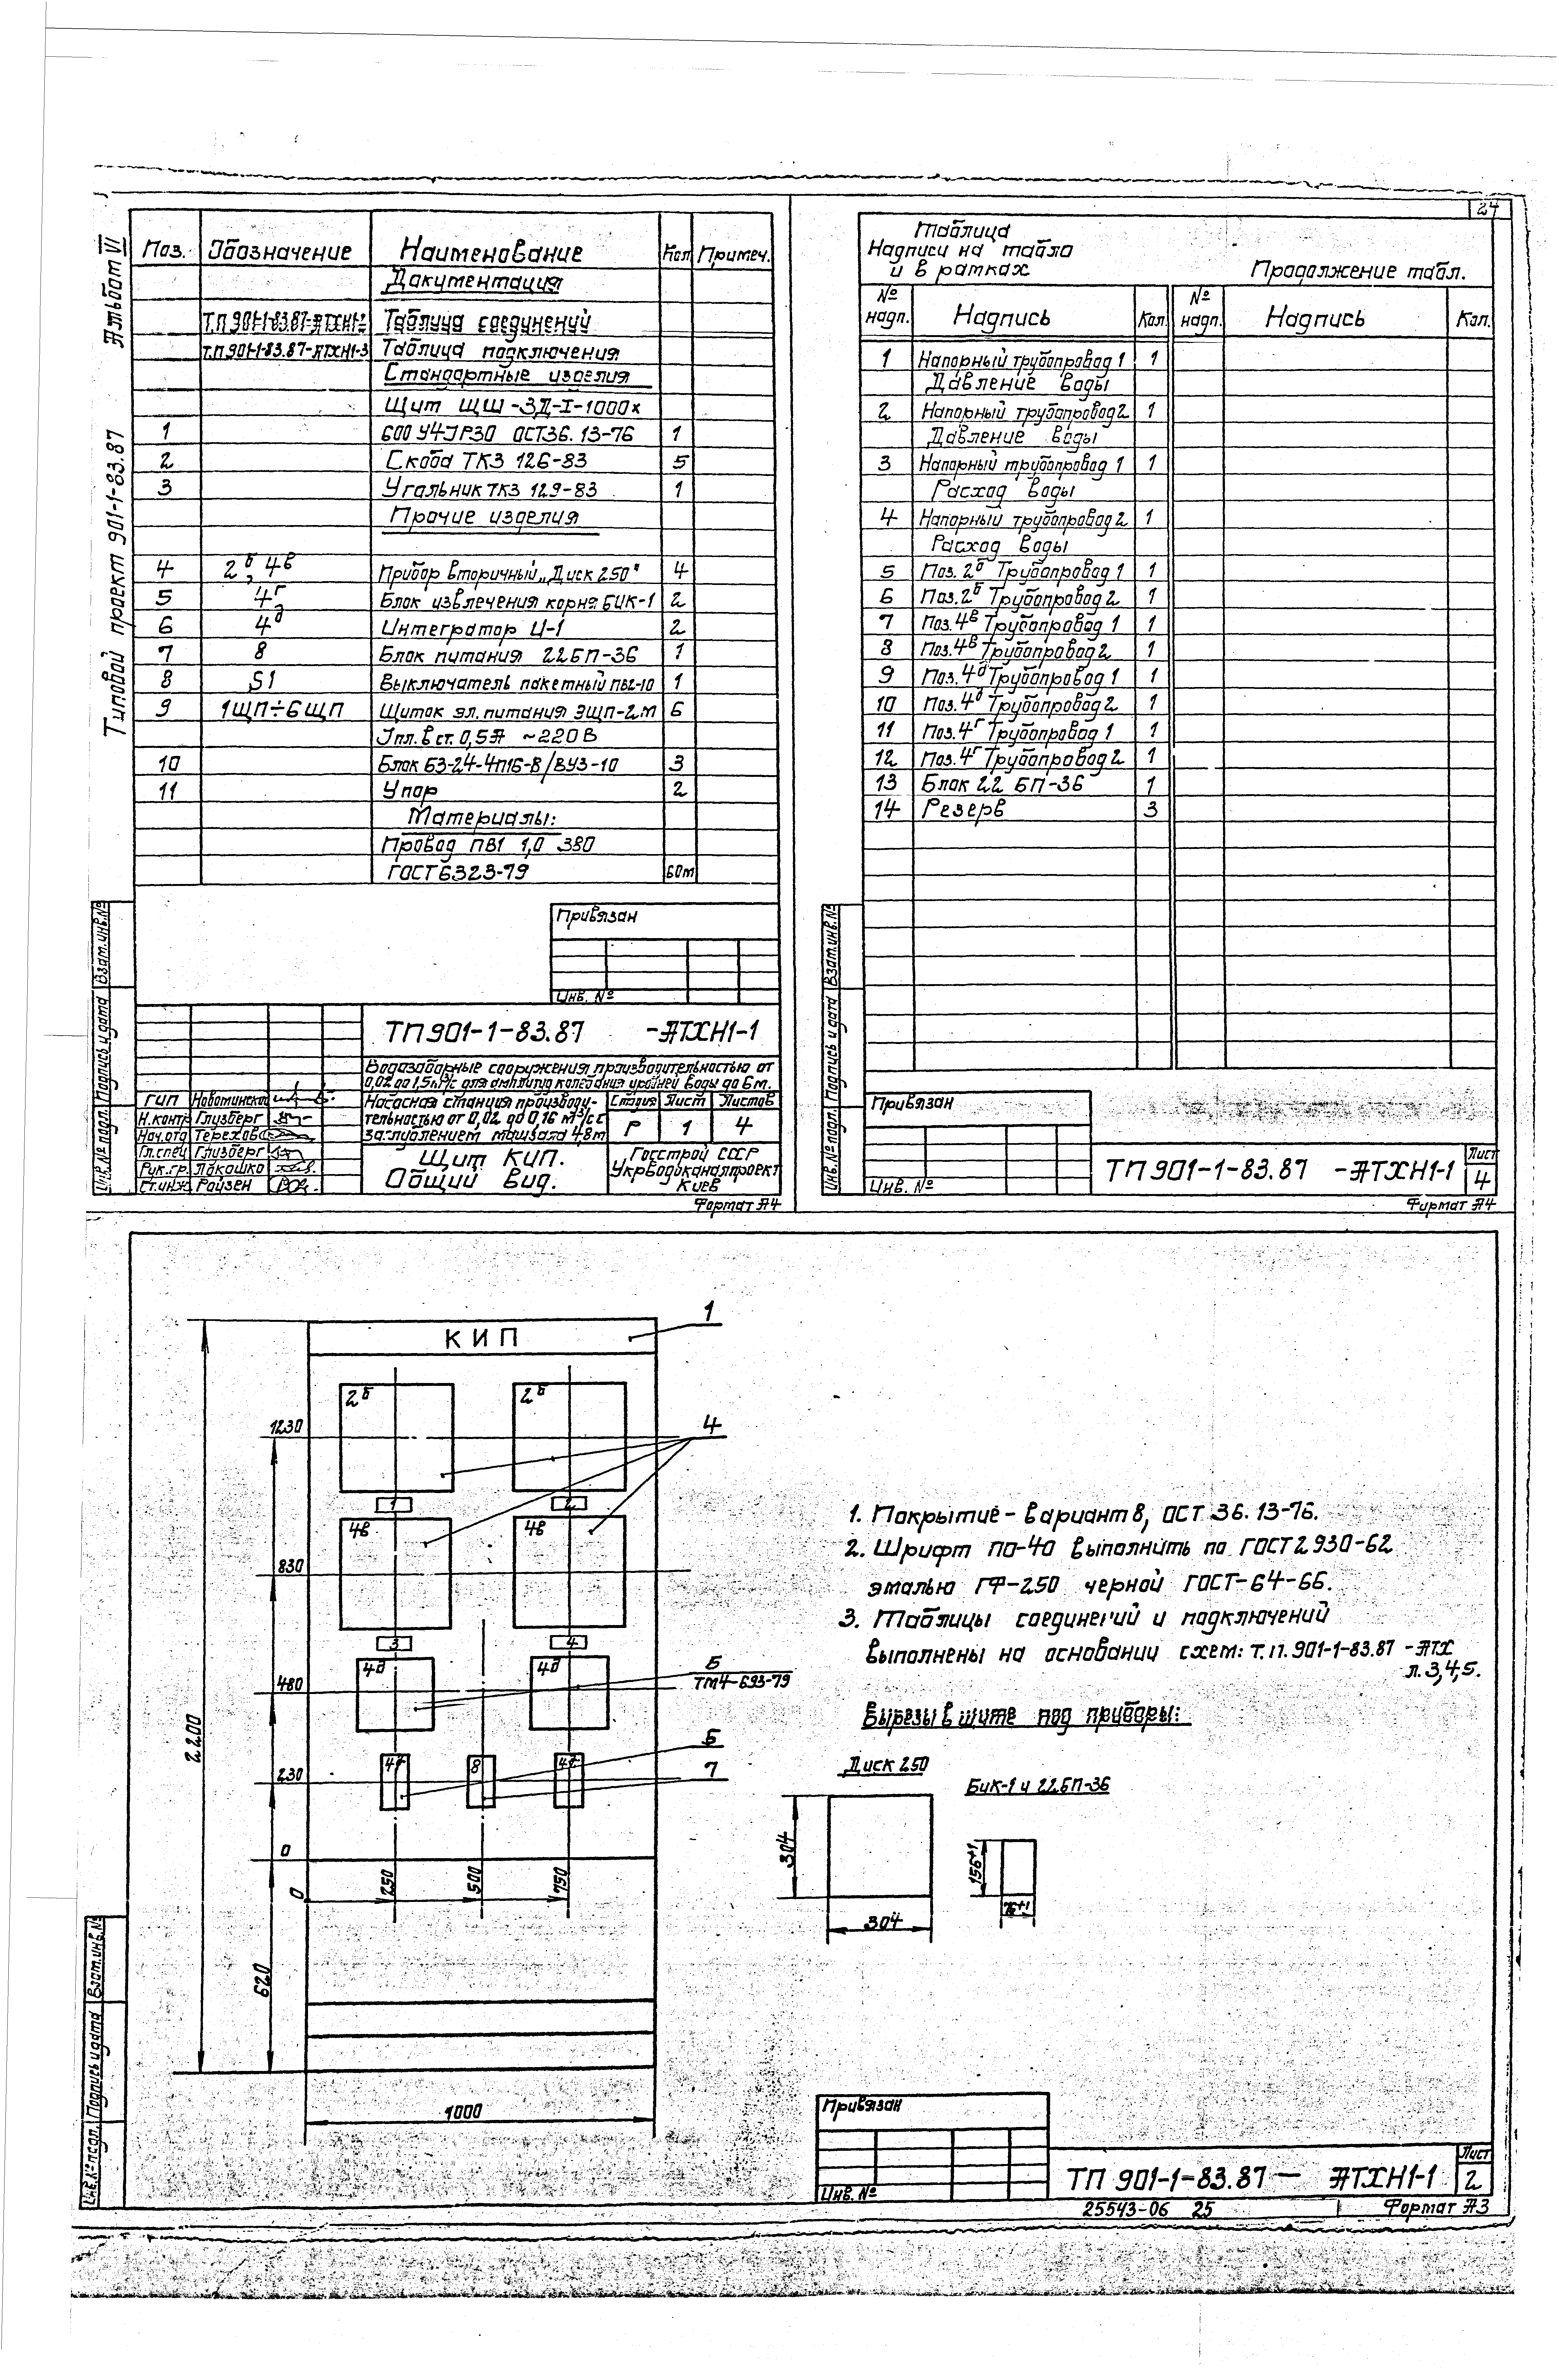 24
Альбом VI
Типовой проект 901-1-83.87
Поз. Обозначение Наименование Кол Примеч.
Документация
Т.П 901-1-83.87-АТХН1-2 Таблица соединений
Т.П 901-1-83.87-АТХН1-3 Таблица подключения
Стандартные изделия
Щит ЩШ-ЗД-I-1000х
1 600 У4 IP30 ОСТ36.13-76 1
2 Скоба ТК3 126-83 5
3 Угольник ТК3 129-83 1
Прочие изделия
4 2б, 4в Прибор вторичный „Диск 250" 4
5 4г Блок извлечения корня БИК-1 2
6 4д Интегратор И-1 2
7 8 Блок питания 22БП-36 1
8 S1 Выключатель пакетный ПВ2-10 1
9 1ЩП÷6ЩП Щиток эл. питания ЭЩП-2М 6
Iпл.вст. 0,5А ~220В
10 Блок Б3-24-4П16-В/ВУ3-10 3
11 Упор 2
Материалы:
Провод ПВ1 1,0 380
ГОСТ 6323-79 60м
Привязан
Инв. №
ТП 901-1-83.87 -АТХН1-1
Водозаборные сооружения производительностью от
0,02 до 1,5 м³/с для амплитуд колебания уровней воды до 6м.
Насосная станция производи-
тельностью от 0,02 до 0,16 м³/с с
заглублением машзала 4,8м
Стадия Лист Листов
Р 1 4
ГИП Новоминской
Н.контр Глизберг
Нач.отд Терехов
Гл.спец Глизберг
Рук.гр. Локошко
Ст.инж Ройзен
Щит КИП.
Общий вид.
Госстрой СССР
Укрводоканалпроект
Киев
Формат А4
Инв.№ подл. Подпись и дата Взам.инв.№
Таблица
Надписи на табло
и в рамках
Продолжение табл.
№ надп. Надпись Кол. № надп. Надпись Кол.
1 Напорный трубопровод 1 1
Давление воды
2 Напорный трубопровод 2 1
Давление воды
3 Напорный трубопровод 1 1
Расход воды
4 Напорный трубопровод 2 1
Расход воды
5 Поз. 2б Трубопровод 1 1
6 Поз. 2б Трубопровод 2 1
7 Поз. 4в Трубопровод 1 1
8 Поз. 4в Трубопровод 2 1
9 Поз. 4д Трубопровод 1 1
10 Поз. 4д Трубопровод 2 1
11 Поз. 4г Трубопровод 1 1
12 Поз. 4г Трубопровод 2 1
13 Блок 22 БП-36 1
14 Резерв 3
Привязан
Инв. №
ТП 901-1-83.87 -АТХН1-1
Лист
4
Формат А4
Инв.№ подл. Подпись и дата Взам.инв.№
КИП
1
2б 2б
1230
4
1 2
4в 4в
830
3 4
4д 4д
480
ТМ4-693-79
4г 8 4г
230
7
0
0 250 500 750
2200
620
1000
1. Покрытие - вариант 8, ОСТ 36.13-76.
2. Шрифт по-40 выполнить по ГОСТ 2930-62
эмалью ГФ-250 черной ГОСТ-64-66.
3. Таблицы соединений и подключений
выполнены на основании схем: т.п. 901-1-83.87 -АТХ
л.3,4,5.
Вырезы в щите под приборы:
Диск 250
304
304
Бик-1 и 22БП-36
156+1
76+1
Привязан
Инв. №
ТП 901-1-83.87 - АТХН1-1
Лист
2
25543-06 25
Формат А3
Инв.№ подл. Подпись и дата Взам.инв.№